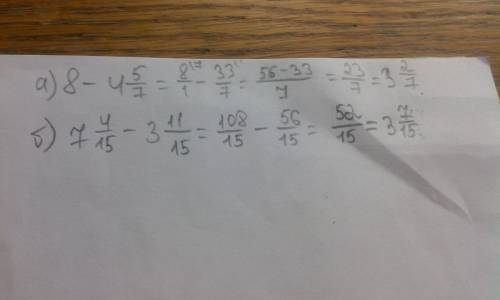 а) 8 - 4 5/7 = 8/1 - 33/7 = 56-33/7 = 23/7 = 3 2/7
б) 7 4/15 - 3 11/15 = 108/15 - 56/15 = 52/15 = 3 7/15